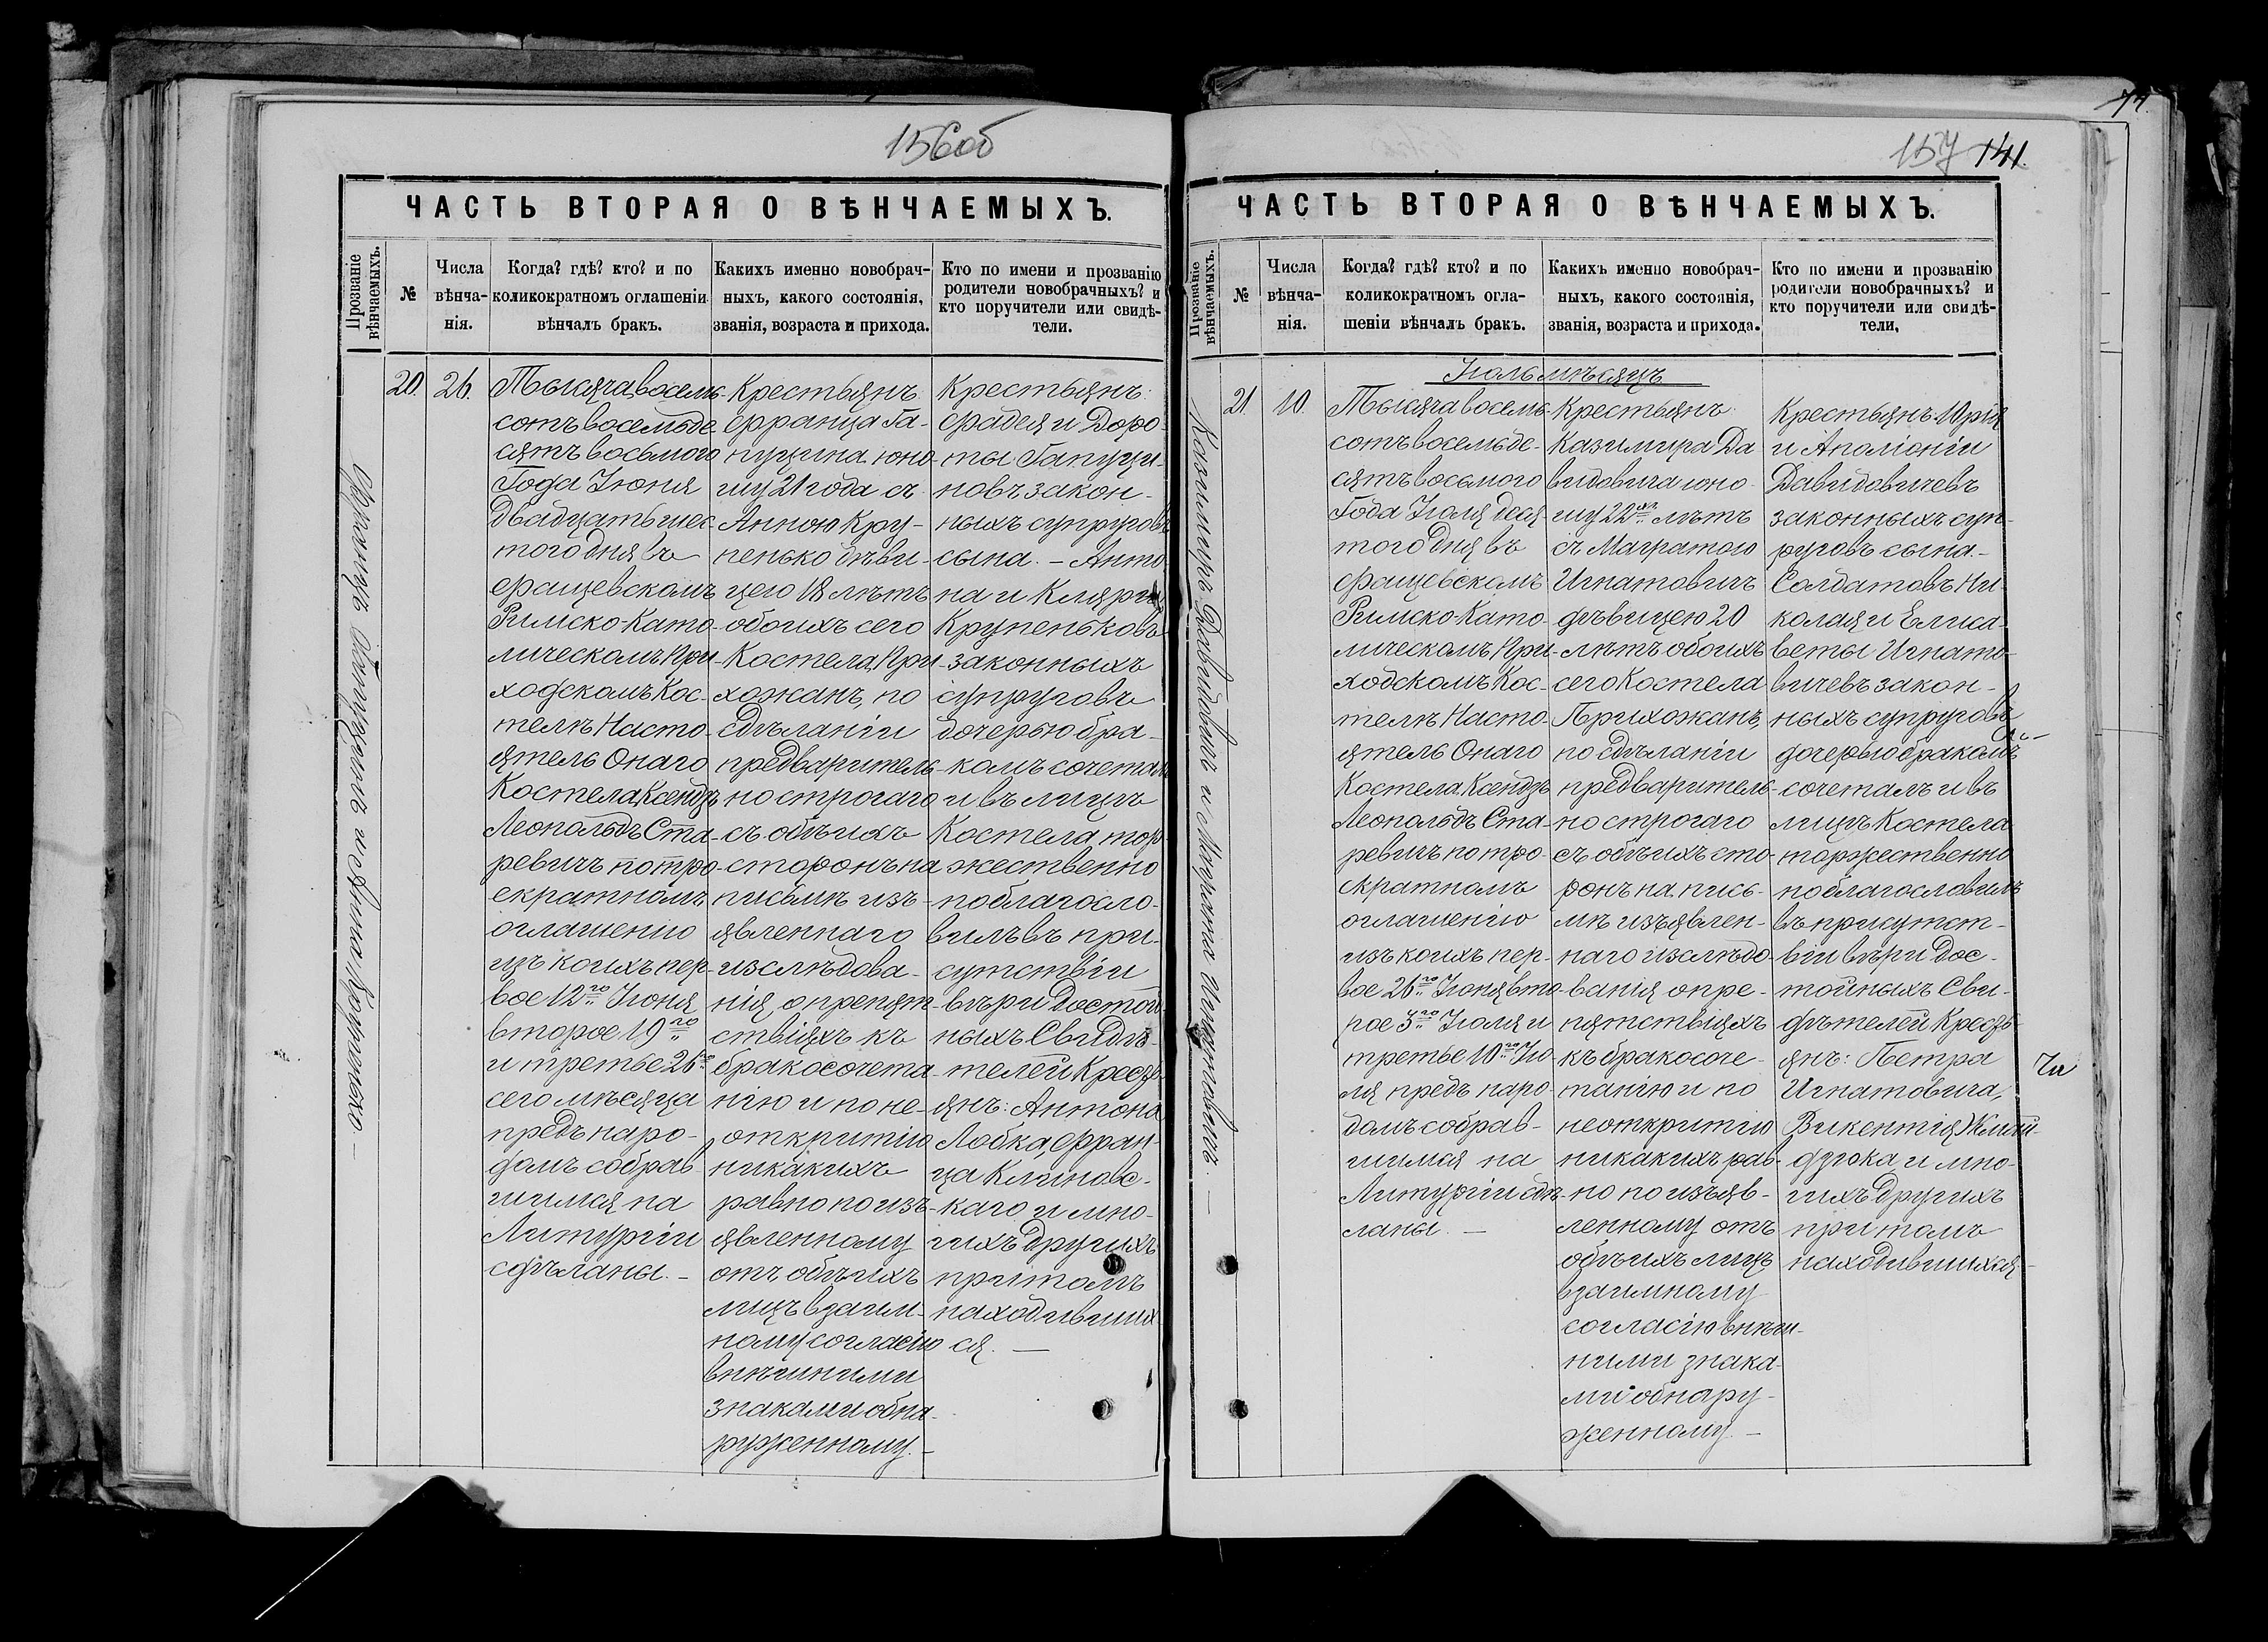 156об
ЧАСТЬ ВТОРАЯ О ВѢНЧАЕМЫХЪ.
Прозваніе вѣнчаемыхъ.
№
Числа вѣнча-
нія.
Когда? гдѣ? кто? и по
коликократномъ оглашеніи
вѣнчалъ бракъ.
Какихъ именно новобрач-
ныхъ, какого состоянія,
званія, возраста и прихода.
Кто по имени и прозванію
родители новобрачныхъ? и
кто поручители или свидѣ-
тели.
Францъ Гапуцинъ и Анна Крупенько —
20.
26.
Тысяча восемь-
сотъ восемьде-
сятъ восьмого
Года Іюня
двадцать шес-
того дня въ
Фащевскомъ
Римско-Като-
лическомъ При-
ходскомъ Кос-
телѣ Насто-
ятель Онаго
Костела Ксендзъ
Леопольдъ Ста-
ревичъ по тро-
екратномъ
оглашенію
изъ коихъ пер-
вое 12го Іюня
второе 19го
и третье 26го
сего мѣсяца
предъ наро-
домъ собрав-
шимся на
Литургіи
сдѣланы. —
Крестьянъ
Франца Га-
пуцина юно-
шу 21 года съ
Анною Кру-
пенько дѣви-
цею 18 лѣтъ
обоихъ сего
Костела При-
хожанъ, по
сдѣланіи
предваритель-
но строгаго
съ обѣихъ
сторонъ на
письмѣ изъ-
явленнаго
изслѣдова-
нія о препят-
ствіяхъ къ
бракосочета-
нію и по не-
открытію
никакихъ
равно по изъ-
явленному
отъ обѣихъ
лицъ взаим-
ному согласію
внѣшними
знаками обна-
руженному. —
Крестьянъ:
Фадея и Доро-
ты Гапуци-
новъ закон-
ныхъ супруговъ
сына. — Анто-
на и Клары
Крупеньковъ
законныхъ
супруговъ
дочерью бра-
комъ сочеталъ
и въ лицѣ
Костела тор-
жественно
поблагосло-
вилъ въ при-
сутствіи
вѣри достой-
ныхъ Свидѣ-
телей Кресть-
янъ: Антона
Лобка, Фран-
ца Клиновс-
каго и мно-
гихъ другихъ
притомъ
находивших-
ся. —
74.
157 141.
ЧАСТЬ ВТОРАЯ О ВѢНЧАЕМЫХЪ.
Прозваніе вѣнчаемыхъ.
№
Числа вѣнча-
нія.
Когда? гдѣ? кто? и по
коликократномъ огла-
шеніи вѣнчалъ бракъ.
Какихъ именно новобрач-
ныхъ, какого состоянія,
званія, возраста и прихода.
Кто по имени и прозванію
родители новобрачныхъ? и
кто поручители или свидѣ-
тели.
Іюль мѣсяцъ
Казимиръ Давидовичъ и Маграта Игнатовичъ. —
21.
10.
Тысяча восемь-
сотъ восемьде-
сятъ восьмого
Года Іюля деся-
того дня въ
Фащевскомъ
Римско-Като-
лическомъ При-
ходскомъ Кос-
телѣ Насто-
ятель Онаго
Костела Ксендзъ
Леопольдъ Ста-
ревичъ по тро-
екратномъ
оглашенію
изъ коихъ пер-
вое 26го Іюня вто-
рое 3го Іюля и
третье 10го Ію-
ля предъ наро-
домъ собрав-
шимся на
Литургіи сдѣ-
ланы. —
Крестьянъ:
Казимира Да-
видовича юно-
шу 22хъ лѣтъ
съ Магратою
Игнатовичъ
дѣвицею 20
лѣтъ обоихъ
сего Костела
Прихожанъ,
по сдѣланіи
предваритель-
но строгаго
съ обѣихъ сто-
ронъ на пись-
мѣ изъявлен-
наго изслѣдо-
ванія о пре-
пятствіяхъ
къ бракосоче-
танію и по
неоткрытію
никакихъ рав-
но по изъяв-
ленному отъ
обѣихъ лицъ
взаимному
согласію внѣш-
ними знака-
ми обнару-
женному. —
Крестьянъ Юрія
и Аполіоніи
Давидовичевъ
законныхъ суп-
руговъ сына. —
Солдатовъ Ни-
колая и Елиса-
веты Игнато-
вичевъ закон-
ныхъ супруговъ
дочерью бракомъ
сочеталъ и въ
лицѣ Костела
торжественно
поблагословилъ
въ присутст-
віи вѣри Дос-
тойныхъ Сви-
дѣтелей Кресть-
янъ: Петра
Игнатовича,
и мно-
гихъ другихъ
притомъ
находившихся —